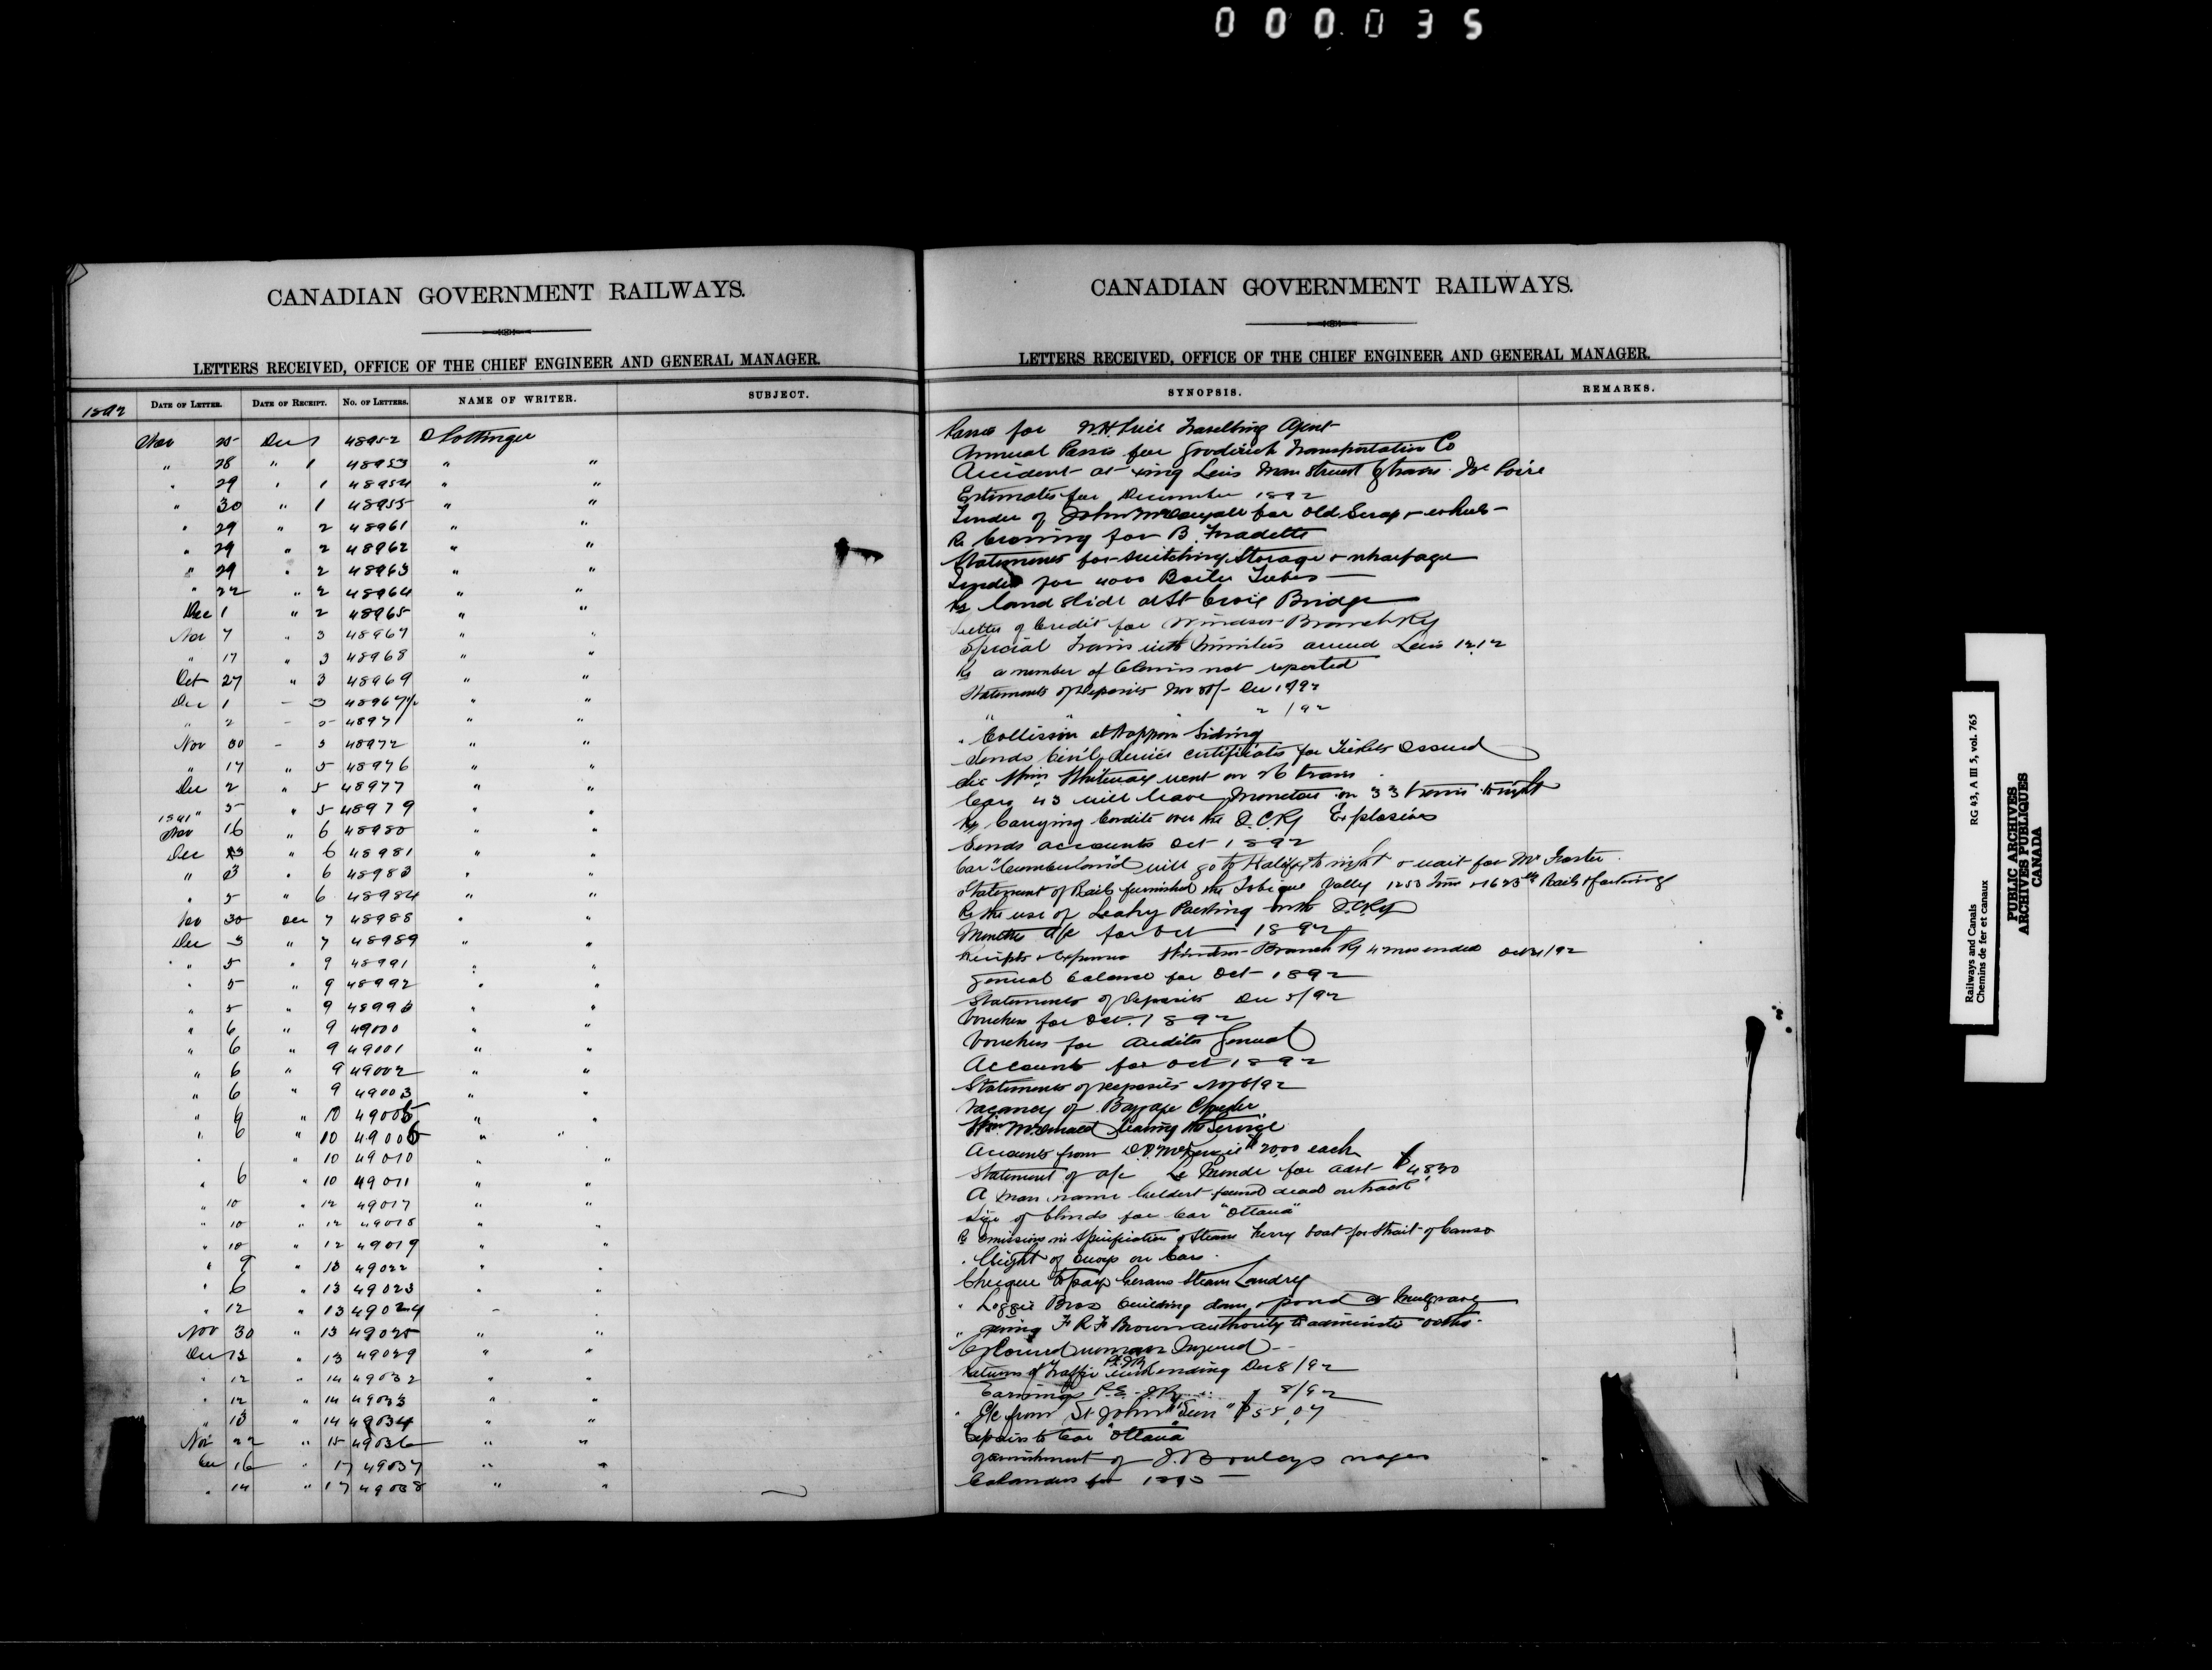 000035
CANADIAN GOVERNMENT RAILWAYS.
LETTERS RECEIVED, OFFICE OF THE CHIEF ENGINEER AND GENERAL MANAGER.
1892 DATE OF LETTER. DATE OF RECEIPT. NO. OF LETTERS. NAME OF WRITER. SUBJECT.
Nov 25 Dec 1 48952 D Pottinger
" 28 " 1 48953 " "
" 29 " 1 48954 " "
" 30 " 1 48955 " "
" 29 " 2 48961 " "
" 29 " 2 48962 " "
" 29 " 2 48963 " "
" 22 " 2 48964 " "
Dec 1 " 2 48965 " "
Nov 7 " 3 48967 " "
" 17 " 3 48968 " "
Oct 27 " 3 48969 " "
Dec 1 - 3 48967½ " "
" 2 - 5 48971 " "
Nov 30 - 5 48972 " "
" 17 " 5 48976 " "
Dec 2 " 5 48977 " "
" 5 " 5 48979 " "
1891
Nov 16 " 6 48980 " "
Dec 3 " 6 48981 " "
" 3 " 6 48983 " "
" 5 " 6 48984 " "
Nov 30 Dec 7 48988 " "
Dec 3 " 7 48989 " "
" 5 " 9 48991 " "
" 5 " 9 48992 " "
" 5 9 48996 " "
" 6 " 9 49000 " "
" 6 " 9 49001 " "
" 6 " 9 49002 " "
" 6 " 9 49003 " "
" 9 " 10 49005 " "
" 6 " 10 49006 " "
" " 10 49010 " "
" 6 " 10 49011 " "
" 10 " 12 49017 " "
" 10 " 12 49018 " "
" 10 " 12 49019 " "
" 9 " 13 49022 " "
" 6 " 13 49023 " "
" 12 " 13 49024 " "
Nov 30 " 13 49025 " "
Dec 13 " 13 49029 " "
" 12 " 14 49032 " "
" 12 " 14 49033 " "
" 13 " 14 49034 " "
Nov 22 " 15 49036 " "
Dec 16 " 17 49037 " "
" 14 " 17 49038 " "
CANADIAN GOVERNMENT RAILWAYS.
LETTERS RECEIVED, OFFICE OF THE CHIEF ENGINEER AND GENERAL MANAGER.
SYNOPSIS. REMARKS.
Passes for W.H. Price Travelling Agent
Annual Passes for Goodrich Transportation Co
Accident at Levis Man Struck by train
Estimates for December 1892
Tender of John McDougall for Old Scrap & wheels
Re Crossing for B. Fradette
Statements for Switching Storage & wharfage
Tender for 4000 Boiler Tubes
Re land slide at St Croix Bridge
Letter of Credit for Windsor Branch Ry
Special Train with Ministers arrived Levis 12.12
Re a number of Claims not reported
Statements of Deposits Nov 30/- Dec 1/92
" " " 2/92
" Collision at Nappan Siding
Sends Civil Service certificate for Tickets issued
Sir Wm Whiteway went on 26 train
Cars 43 will leave Moncton on 33 train tonight
Re Carrying Cordite over the I.C.Ry Explosives
Sends accounts Oct 1892
Car "Cumberland" will go to Halifax to night & wait for Mr Foster
Statement of Rails furnished the Tobique Valley 1253 Tons Rails & fastenings
Re the use of Leahy Packing on the I.C.Ry
Moncton a/c for Oct 1892
Receipts & Expenses Windsor Branch Ry 4 mos ended Oct 31/92
General balance for Oct 1892
Statements of Deposits Dec 5/92
Vouchers for Oct. 1892
Vouchers for Auditor General
Accounts for Oct 1892
Statements of Deposits
Vacancy of Baggage Checker
Wm McDonald leaving the Service
Accounts from each
Statement of a/c Le Monde for advt $48.30
A man name Geldert found dead on track
Size of blinds for Car "Ottawa"
Re omissions in Specification of Steam Ferry boat for Strait of Canso
" Height of on Cars
Cheque to pay Steam Laundry
" Loggie Bros building dam & pond at Mulgrave
" giving F R F Brown authority to administer oaths
Coloured woman Injured
Returns of Traffic P.E.I.Ry ending Dec 8/92
Earnings P.E.I.Ry " " 8/92
" a/c from St John "Sun" $58.07
Repairs to Car "Ottawa"
Garnishment of J. wages
Calendars for 1893
Railways and Canals RG 43, A III 5, vol. 765
Chemins de fer et canaux
PUBLIC ARCHIVES
ARCHIVES PUBLIQUES
CANADA